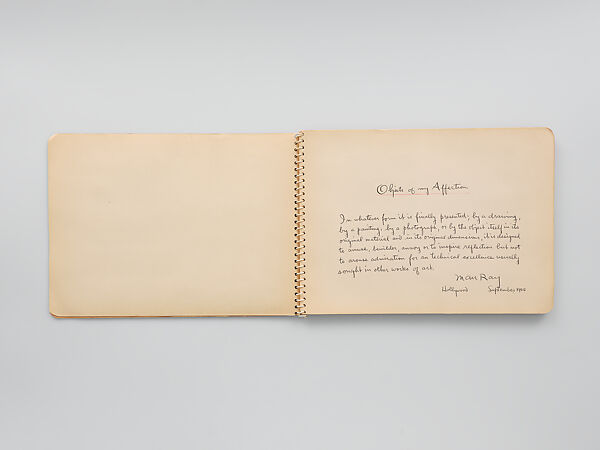 Objects of my Affection
In whatever form it is finally presented; by a drawing,
by a painting, by a photograph, or by the object itself in its
original material and in its original dimensions, it is designed
to amuse, bewilder, annoy or to inspire reflection but not
to arouse admiration for an technical excellence usually
sought in other works of art.
Man Ray
Hollywood September